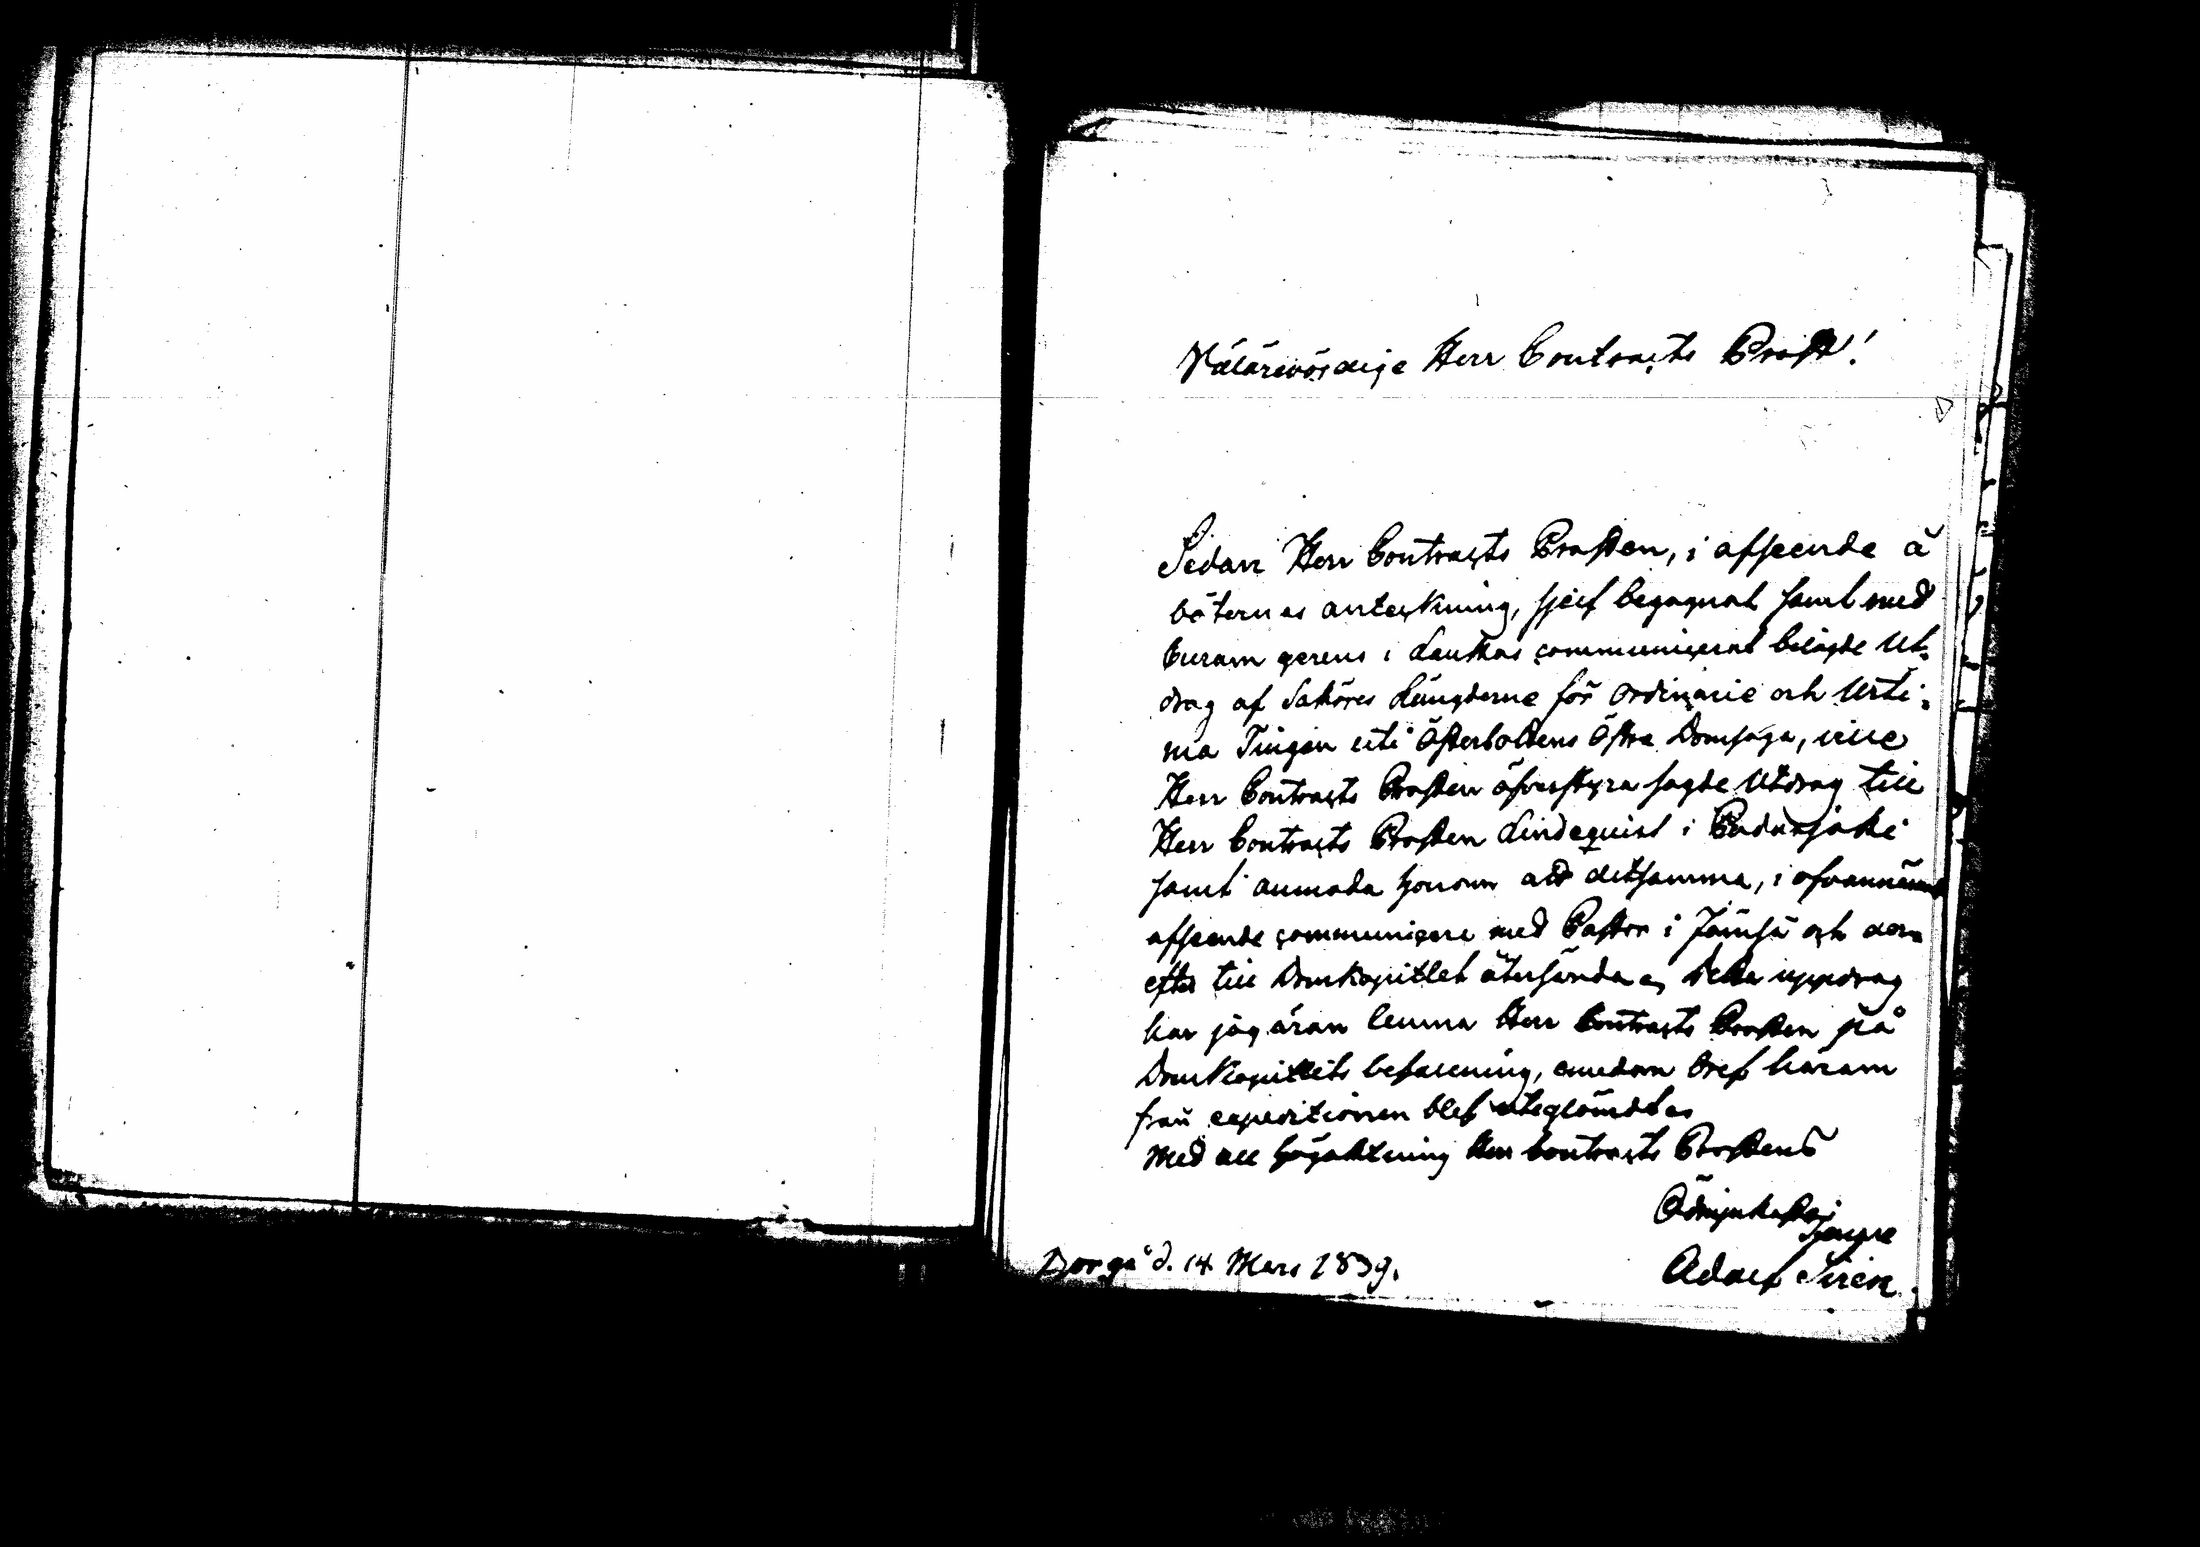 Välärevördige Herr Contracts Prost!
Sedan Herr Contracts Prosten, i afseende å
böternes anteckning, sjelf begagnat samt med
Curam gerens i Laukas communicerat bilagde Ut-
drag af Saköres Längderne för Ordinarie och Urti-
ma Tingen uti Österbottens Östra Domsaga, ville
Herr Contracts Prosten öfverstyra sagde Utdrag till
Herr Contracts Prosten Lindequist i Padasjoki
samt anmoda honom att detsamma, i ofvannämnd
afseende communicera med Pastor i Jämsä och der-
efter till Domkapitlet återsända. Detta uppdrag
har jag äran lemna Herr Contracts Prosten på
Domkapitlets befallning, emedan Bref härom
från expeditionen blef uteglömdt.
Med all högaktning Herr Contracts Prostens
Ödmjukaste
tjenare
Borgå d. 14 Mars 1839.
Adolf Sirén.